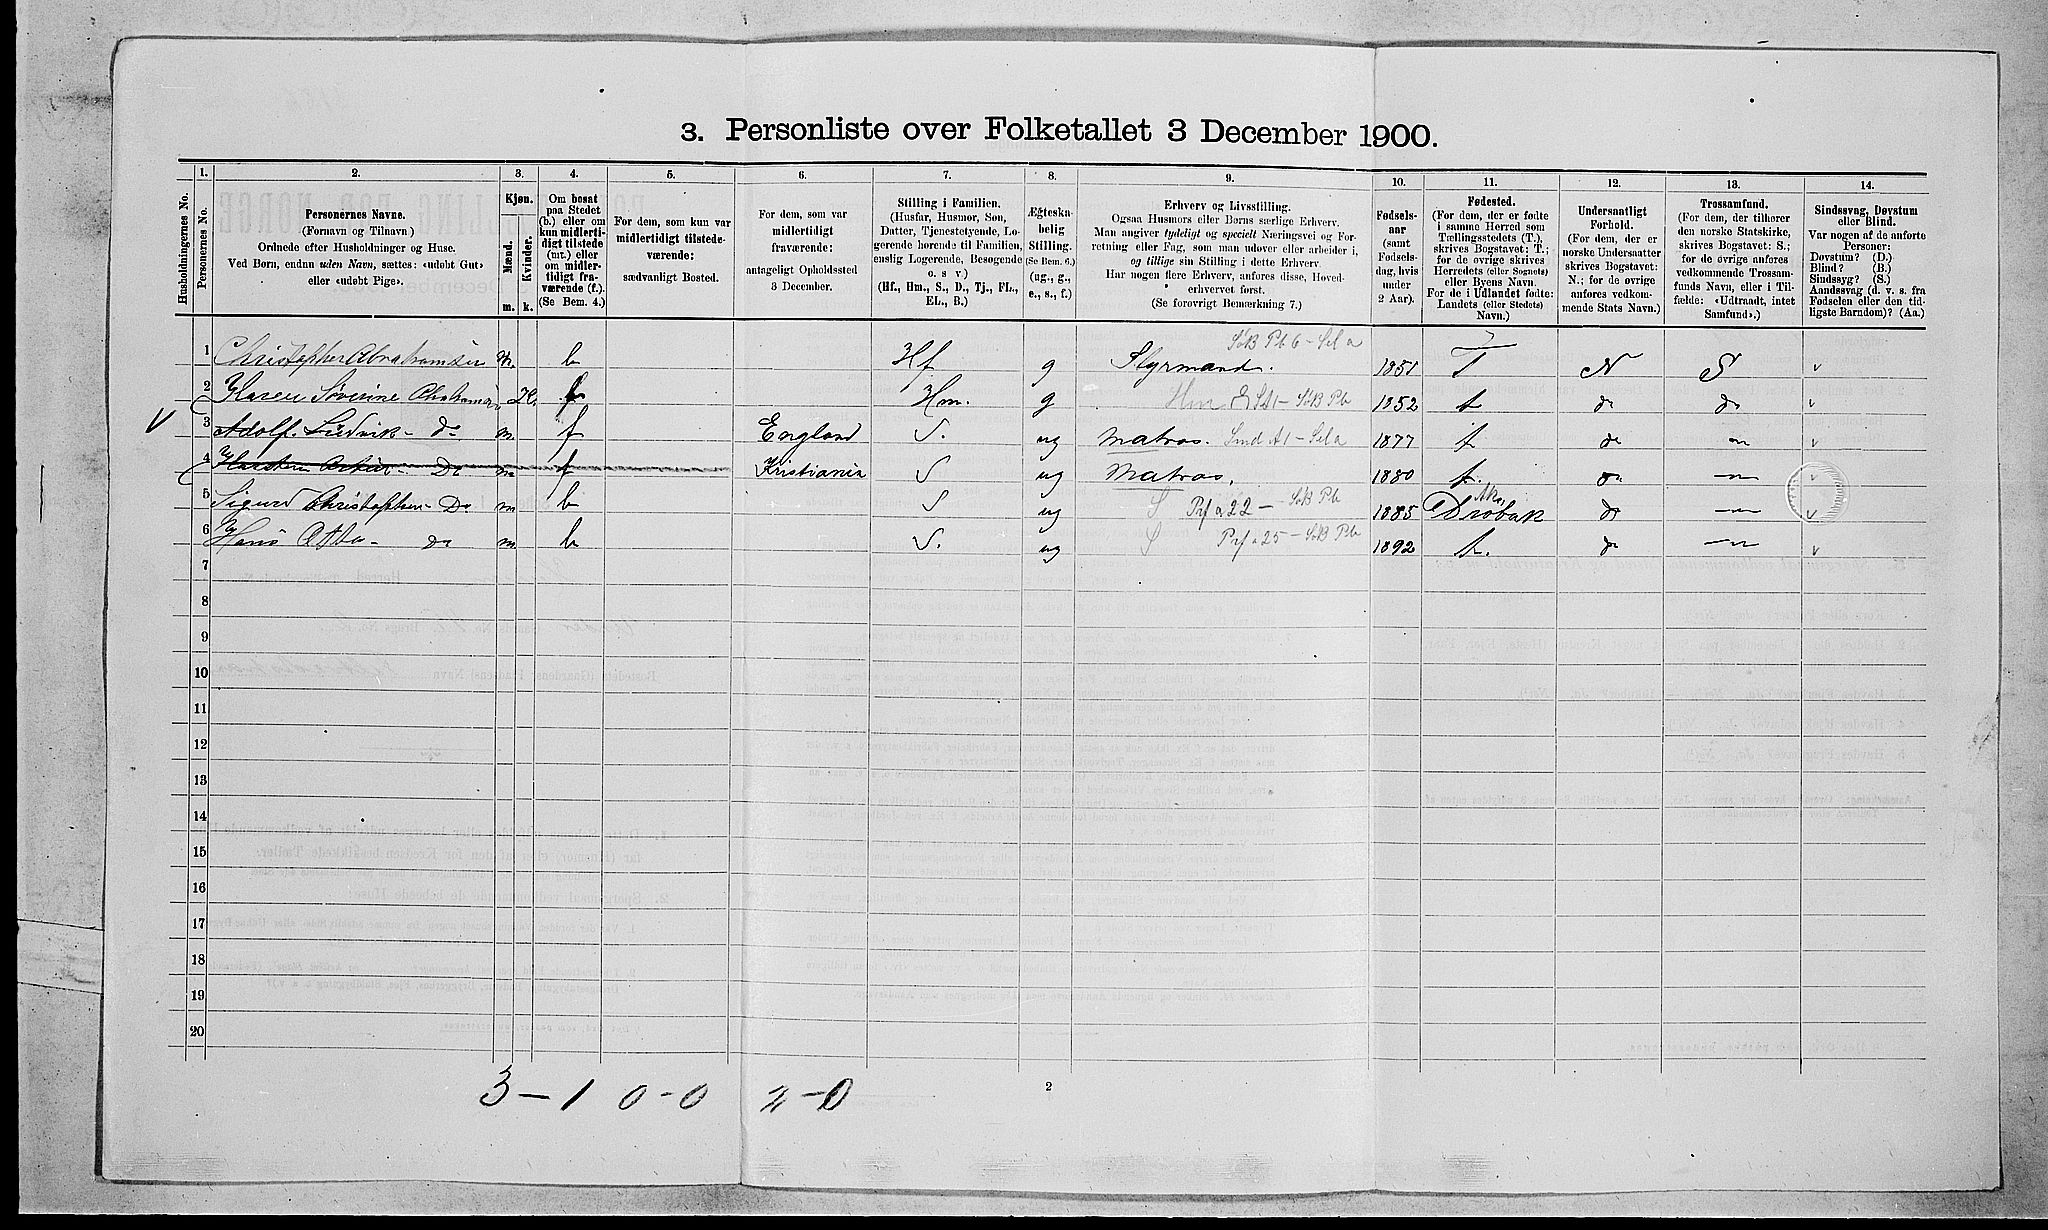 3. Personliste over Folketallet 3 December 1900.
Husholdningernes No.
1.
Personernes No.
2.
Personernes Navne.
(Fornavn og Tilnavn)
Ordnede efter Husholdninger og Huse.
Ved Børn, endnu uden Navn, sættes: «udøbt Gut»
eller «udøbt Pige».
3.
Kjøn.
Mænd.
Kvinder.
m. k.
4.
Om bosat
paa Stedet
(b.) eller om
kun midlerti-
digt tilstede
(mt.) eller
om midler-
tidigt fra-
værende (f.).
(Se Bem. 4.)
5.
For dem, som kun var
midlertidigt tilstede-
værende:
sædvanligt Bosted.
6.
For dem, som var
midlertidigt
fraværende:
antageligt Opholdssted
3 December.
7.
Stilling i Familien.
(Husfar, Husmor, Søn,
Datter, Tjenestetyende, Lo-
gerende hørende til Familien,
enslig Logerende, Besøgende
o. s v.)
(Hf., Hm., S., D., Tj., FL.,
EL., B.)
8.
Ægteska-
belig
Stilling.
(Se Bem. 6.)
(ug., g.,
e., s., f.)
9.
Erhverv og Livsstilling.
Ogsaa Husmors eller Børns særlige Erhverv.
Man angiver tydeligt og specielt Næringsvei og For-
retning eller Fag, som man udøver eller arbeider i,
og tillige sin Stilling i dette Erhverv.
Har nogen flere Erhverv, anføres disse, Hoved-
erhvervet først.
(Se forøvrigt Bemærkning 7.)
10.
Fødsels-
aar
(samt
Fødsels-
dag, hvis
under
2 Aar).
11.
Fødested.
(For dem, der er fødte
i samme Herred som
Tællingsstedets (T.),
skrives Bogstavet: T.;
for de øvrige skrives
Herredets (eller Sognets)
eller Byens Navn.
For de i Udlandet fødte:
Landets (eller Stedets)
Navn.)
12.
Undersaatligt
Forhold.
(For dem, der er
norske Undersaatter
skrives Bogstavet:
N.; for de øvrige
anføres vedkom-
mende Stats Navn.)
13.
Trossamfund.
(For dem, der tilhører
den norske Statskirke,
skrives Bogstavet: S.;
for de øvrige anføres
vedkommende Trossam-
funds Navn, eller i Til-
fælde: «Udtraadt, intet
Samfund».)
14.
Sindssvag, Døvstum
eller Blind.
Var nogen af de anførte
Personer:
Døvstum? (D.)
Blind? (B.)
Sindssyg? (S.)
Aandssvag (d. v. s. fra
Fødselen eller den tid-
ligste Barndom)? (Aa.)
1 Christopher Abrahamsen m. b Hf g Styrmand. 1851 T N S v
2 Karen Severine Abrahamsen K. Hm. g Hm 1852 t do do v
V 3 Adolf Ludvik do m f England S. ug Matros. 1877 t do v
4 Do m f Kristiania S ug Matros. 1880 t. do v
5 Sigurd Christopher Do m b S ug S 1885 Drøbak do v
6 Hans Otto do m b S. ug S 1892 t. do v
7
8
9
10
11
12
13
14
15
16
17
18
19
20
3 – 1 0 – 0 2 – 0
2